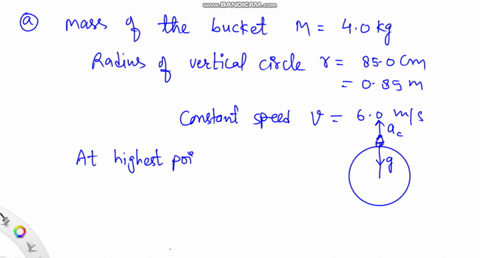 WWW.BANDICAM.COM
(a) Mass of the bucket M = 4.0 kg
Radius of vertical circle r = 85.0 cm
= 0.85 m
Constant speed V = 6.0 m/s
a_c
At highest poi
g